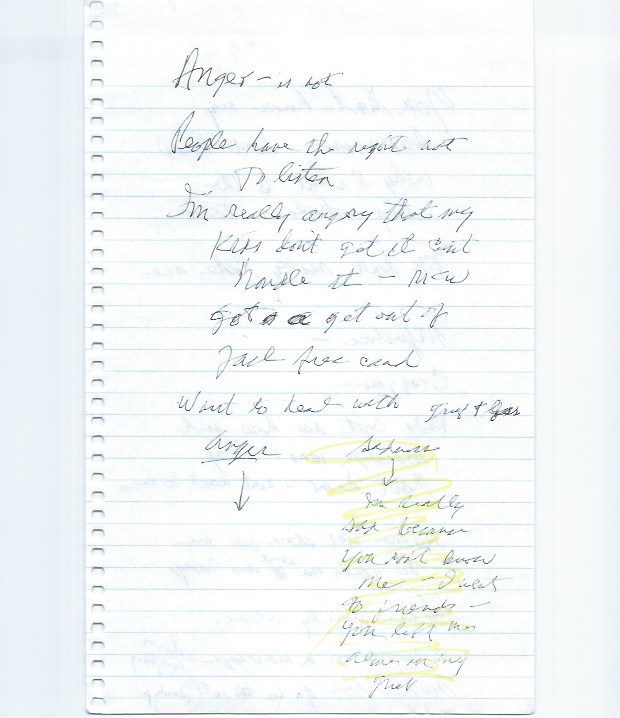 Anger - is not
People have the right not
To listen
I'm really angry that my
Kids don't get it can't
Handle it -
Got a get out of
Jail free card
Want to deal with grief &
anger sadness
I'm really
sad because
you don't know
me - I went
to friends -
you left me
alone in my
grief